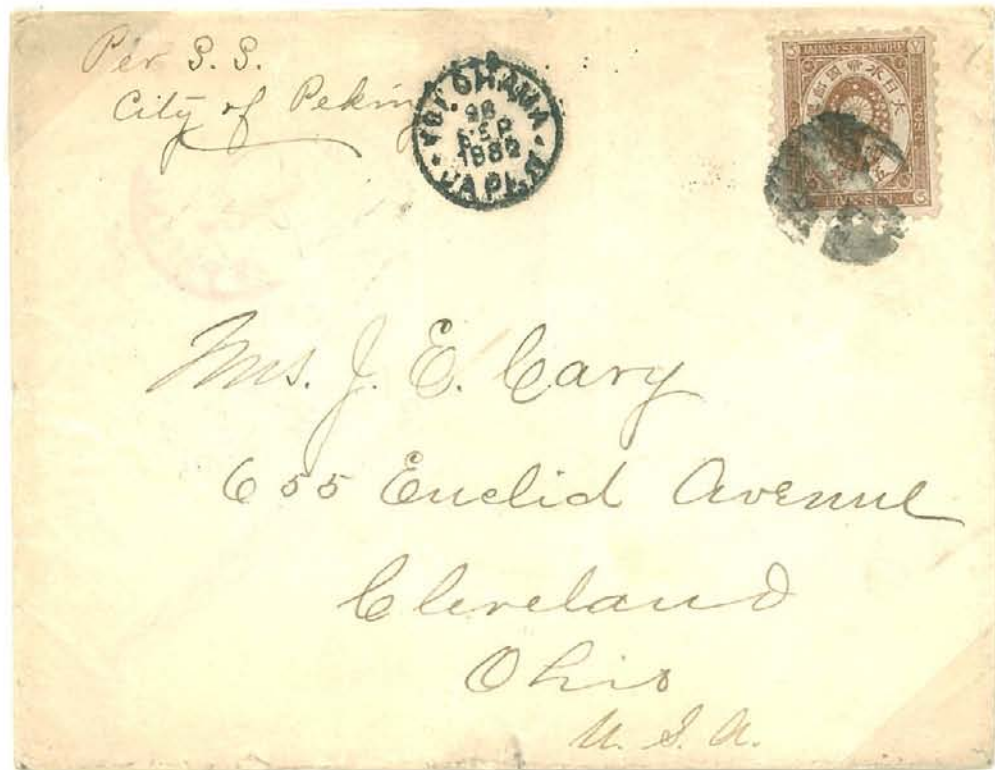 Per S. S.
City of Peking
YOKOHAMA
28
SEP
1882
JAPAN
JAPANESE EMPIRE
大日本帝國郵便
5
FIVE SEN
5
Mrs. J. E. Cary
655 Euclid Avenue
Cleveland
Ohio
U. S. A.